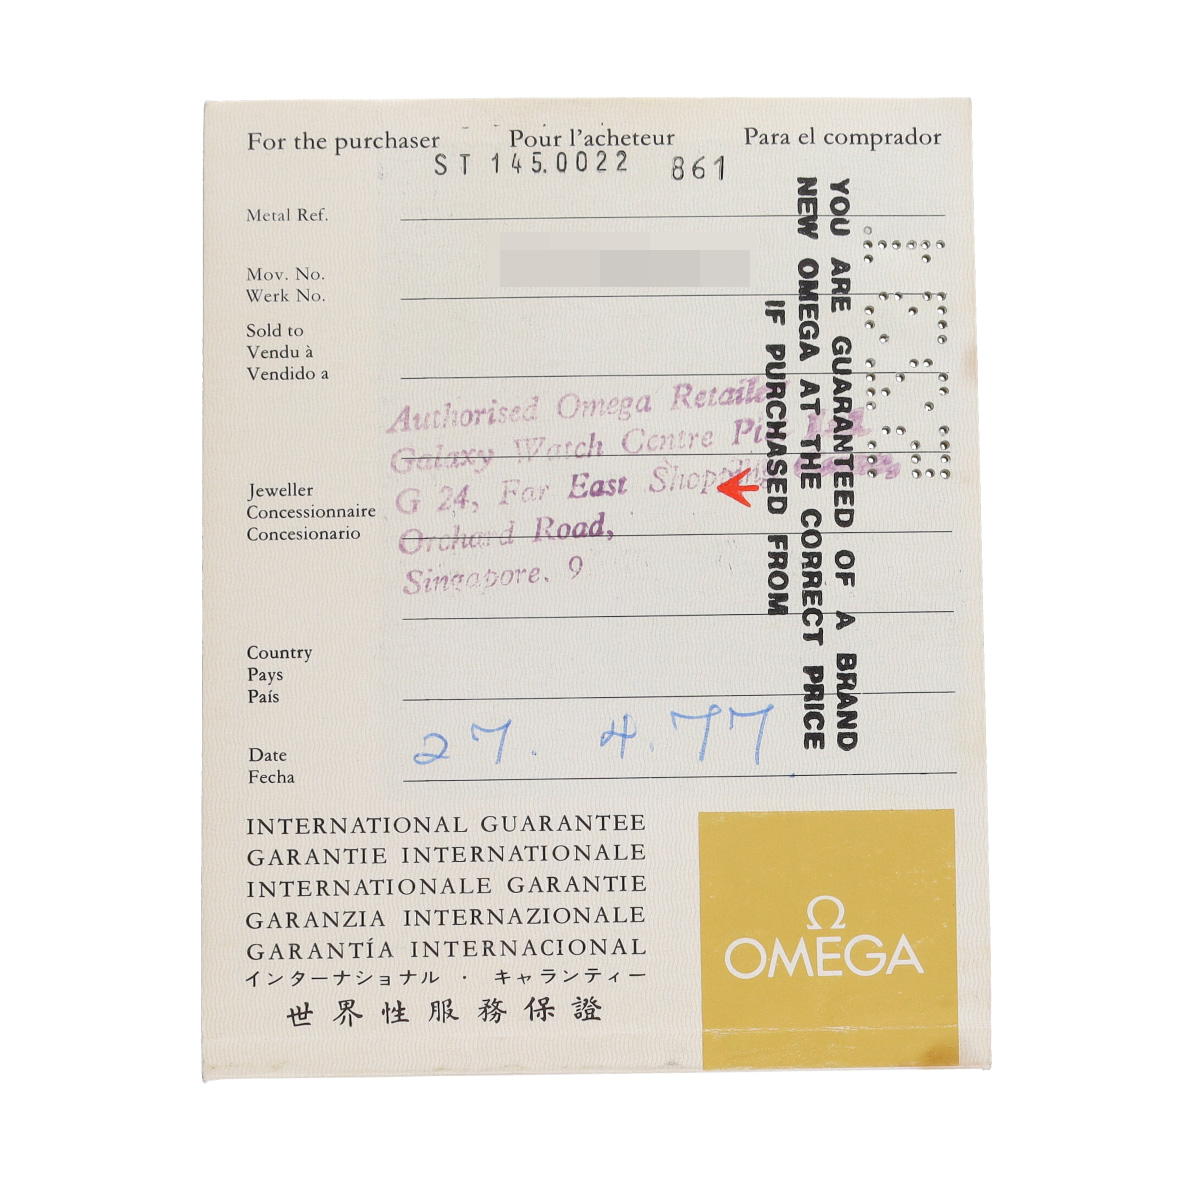 For the purchaser Pour l'acheteur Para el comprador
ST 145.0022 861
Metal Ref.
Mov. No.
Werk No.
Sold to
Vendu à
Vendido a
Authorised Omega Retailer
Galaxy Watch Centre Pte Ltd.
G 24, Far East Shopping Centre,
Orchard Road,
Singapore. 9
Jeweller
Concessionnaire
Concesionario
Country
Pays
País
Date
Fecha
27. 4.77
YOU ARE GUARANTEED OF A BRAND
NEW OMEGA AT THE CORRECT PRICE
IF PURCHASED FROM
INTERNATIONAL GUARANTEE
GARANTIE INTERNATIONALE
INTERNATIONALE GARANTIE
GARANZIA INTERNAZIONALE
GARANTÍA INTERNACIONAL
インターナショナル・キャランティー
世界性服務保證
Ω
OMEGA